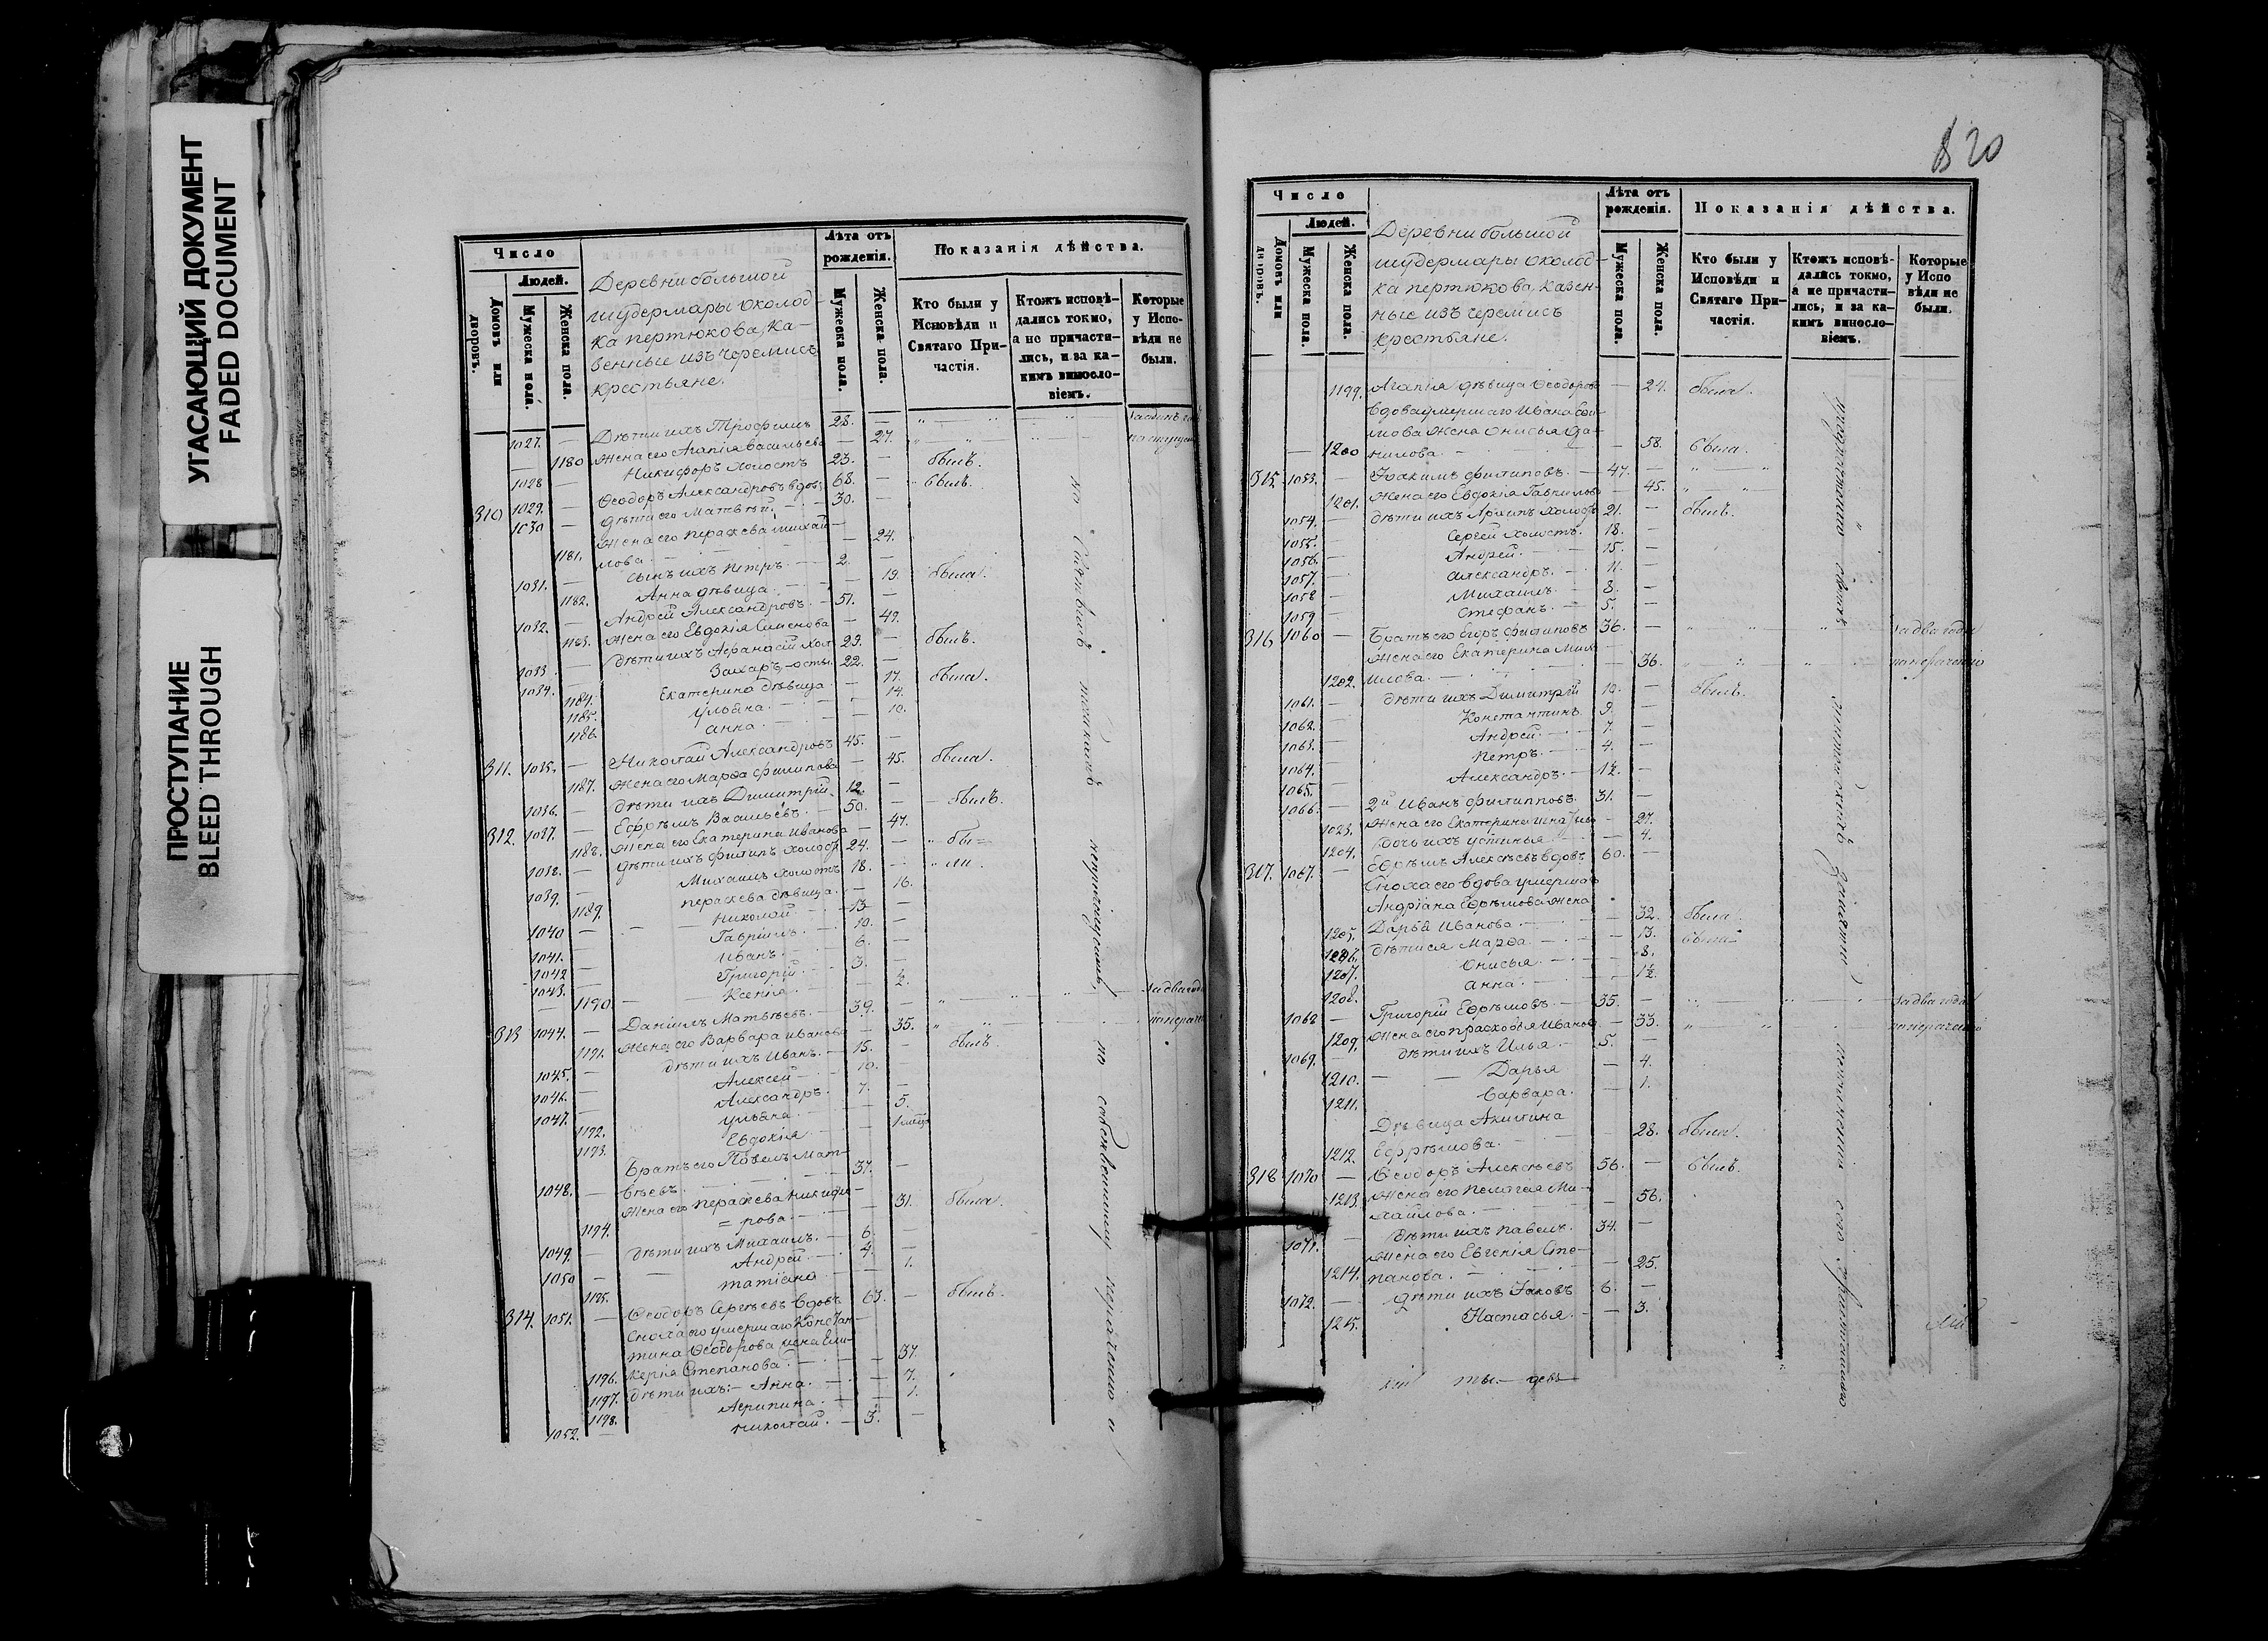 УГАСАЮЩИЙ ДОКУМЕНТ
FADED DOCUMENT
ПРОСТУПАНИЕ
BLEED THROUGH
Число
Людей.
Домовъ или дворовъ.
Мужеска пола.
Женска пола.
Деревни большой
шудермары околод-
ка пертюкова, ка-
зенные изъ черемисъ
крестьяне.
Лѣта отъ рожденія.
Мужеска пола.
Женска пола.
Показанія дѣйства.
Кто были у Исповѣди и Святаго При-частія.
Ктожъ исповѣ-дались токмо, а не причасти-лись, и за ка-кимъ винosло-віемъ.
Которые у Испо-вѣди не были.
1027. — Дѣти ихъ Трофимъ 28. —
1180 Жена его Агапія Васильева — 27.
1028 — Никифоръ холостъ 23. — былъ.
310 1029. — Ѳеодоръ Александровъ вдовъ 68. — былъ.
1030 — Дѣти его Матвѣй. 30. —
Жена его Параскева Михай-
1181. лова — 24.
1031. — сынъ ихъ Петръ. 2. —
1182. Анна дѣвица — 19. была.
1032. — Андрей Александровъ. 51. —
1183. Жена его Евдокія Семенова — 49.
1033 — Дѣти ихъ Аѳанасій хол- 29. — былъ.
1034. — Захаръ -осты. 22. —
1184. Екатерина дѣвица — 17. была.
1185. Ульяна. — 14.
1186. Анна. — 10.
311. 1035. — Николай Александровъ 45. —
1187. Жена его Марѳа Филипова — 45. была.
1036. — Дѣти ихъ Димитрій. 12. —
312. 1037. — Ефремъ Васильевъ. 50. — былъ.
1188. Жена его Екатерина Иванова — 47.
1038. — Дѣти ихъ Филипъ холост. 24. — бы=
1039. — Михаилъ холостъ 18. — ли.
1189. Параскева дѣвица. — 16.
1040 — Николай. 13 —
1041. — Гавріилъ. 10. —
1042 — Иванъ. 6. —
1043. — Григорій. 3. —
1190. Ксенія. — ½.
313 1044. — Даніилъ Матвѣевъ. 39. — за два года
1191. Жена его Варвара Иванова — 35.
1045. — Дѣти ихъ Иванъ. 15. — былъ.
1046. — Алексей 10. —
1047. — Александръ. 7. —
1192. Ульяна. — 5.
1193. Евдокія —
Братъ его Павелъ Мат-
1048. — вѣевъ. 37. —
Жена его Параскева Никифо-
1194. = рова. — 31. была.
1049. — Дѣти ихъ Михаилъ. 6. —
1050 — Андрей. 4. —
1195. Татіана — 1.
314. 1051. — Ѳеодоръ Сергѣевъ вдовъ 63. — былъ.
Сноха его умершаго Констан-
тина Ѳеодорова жена Гли-
1196. керія Степанова. — 37.
1197. Дѣти ихъ: — Анна. — 7.
1198. Агрипина. — 1.
1052. — Николай. 3. —
20
Число
Людей.
Домовъ или дворовъ.
Мужеска пола.
Женска пола.
Деревни большой
шудермары околод-
ка пертюкова, казен-
ные изъ черемисъ
крестьяне.
Лѣта отъ рожденія.
Мужеска пола.
Женска пола.
Показанія дѣйства.
Кто были у Исповѣди и Святаго При-частія.
Ктожъ исповѣ-дались токмо, а не причасти-лись, и за ка-кимъ винosло-віемъ.
Которые у Испо-вѣди не были.
1199. Агапія дѣвица Ѳеодоров — 24. была.
Вдова умершаго Ивана
1200 жена Онисья Да-
нилова. — 58. была.
315. 1053. — Іоакимъ Филиповъ. 47. —
1201. Жена его Евдокія Гаврилова — 45.
1054. — Дѣти ихъ Архипъ холост. 21. — былъ.
1055. — Сергей холостъ. 18. —
1056. — Андрей. 15. —
1057. — Александръ. 11. —
1058 — Михаилъ. 8. —
1059 — Стефанъ. 5. —
316 1060 — Братъ его Егоръ Филиповъ 36. — за два года
Жена его Екатерина Миха-
1202. илова. — 36. по нераченію
1061. — Дѣти ихъ Димитрій 10. — былъ.
1062. — Константинъ. 9. —
1063. — Андрей. 7. —
1064. — Петръ. 4. —
1065. — Александръ. 1½. —
1066. — 2й Иванъ Филипповъ. 31. —
1203. Жена его Екатерина Игнатьева — 27.
1204. Дочь ихъ Устинья — 4.
317. 1067. — Ефремъ Алексѣевъ вдовъ 60. —
Сноха его вдова умершаго
Андріана Ефремова жена
1205. Дарья Иванова. — 32. была.
1206. Дѣти ея Марѳа. — 13. была
1207. Онисья. — 8.
1208. Анна. — 1½.
1068 — Григорій Ефремовъ. 35. — за два года
1209. Жена его Прасковья Иванова — 33. по нераченію
1069. — Дѣти ихъ Илья. 5. —
1210. Дарья — 4.
1211. Варвара. — 1.
Дѣвица Акилина
1212. Ефремова. — 28. была.
318 1070 — Ѳеодоръ Алексѣевъ 56. — былъ.
1213. Жена его Пелагея Ми-
хайлова. — 56.
1071. — Дѣти ихъ Павелъ. 34. —
Жена его Евгенія Сте-
1214. панова. — 25.
1072. — Дѣти ихъ Іаковъ 6. —
1215. Настасья. — 3.